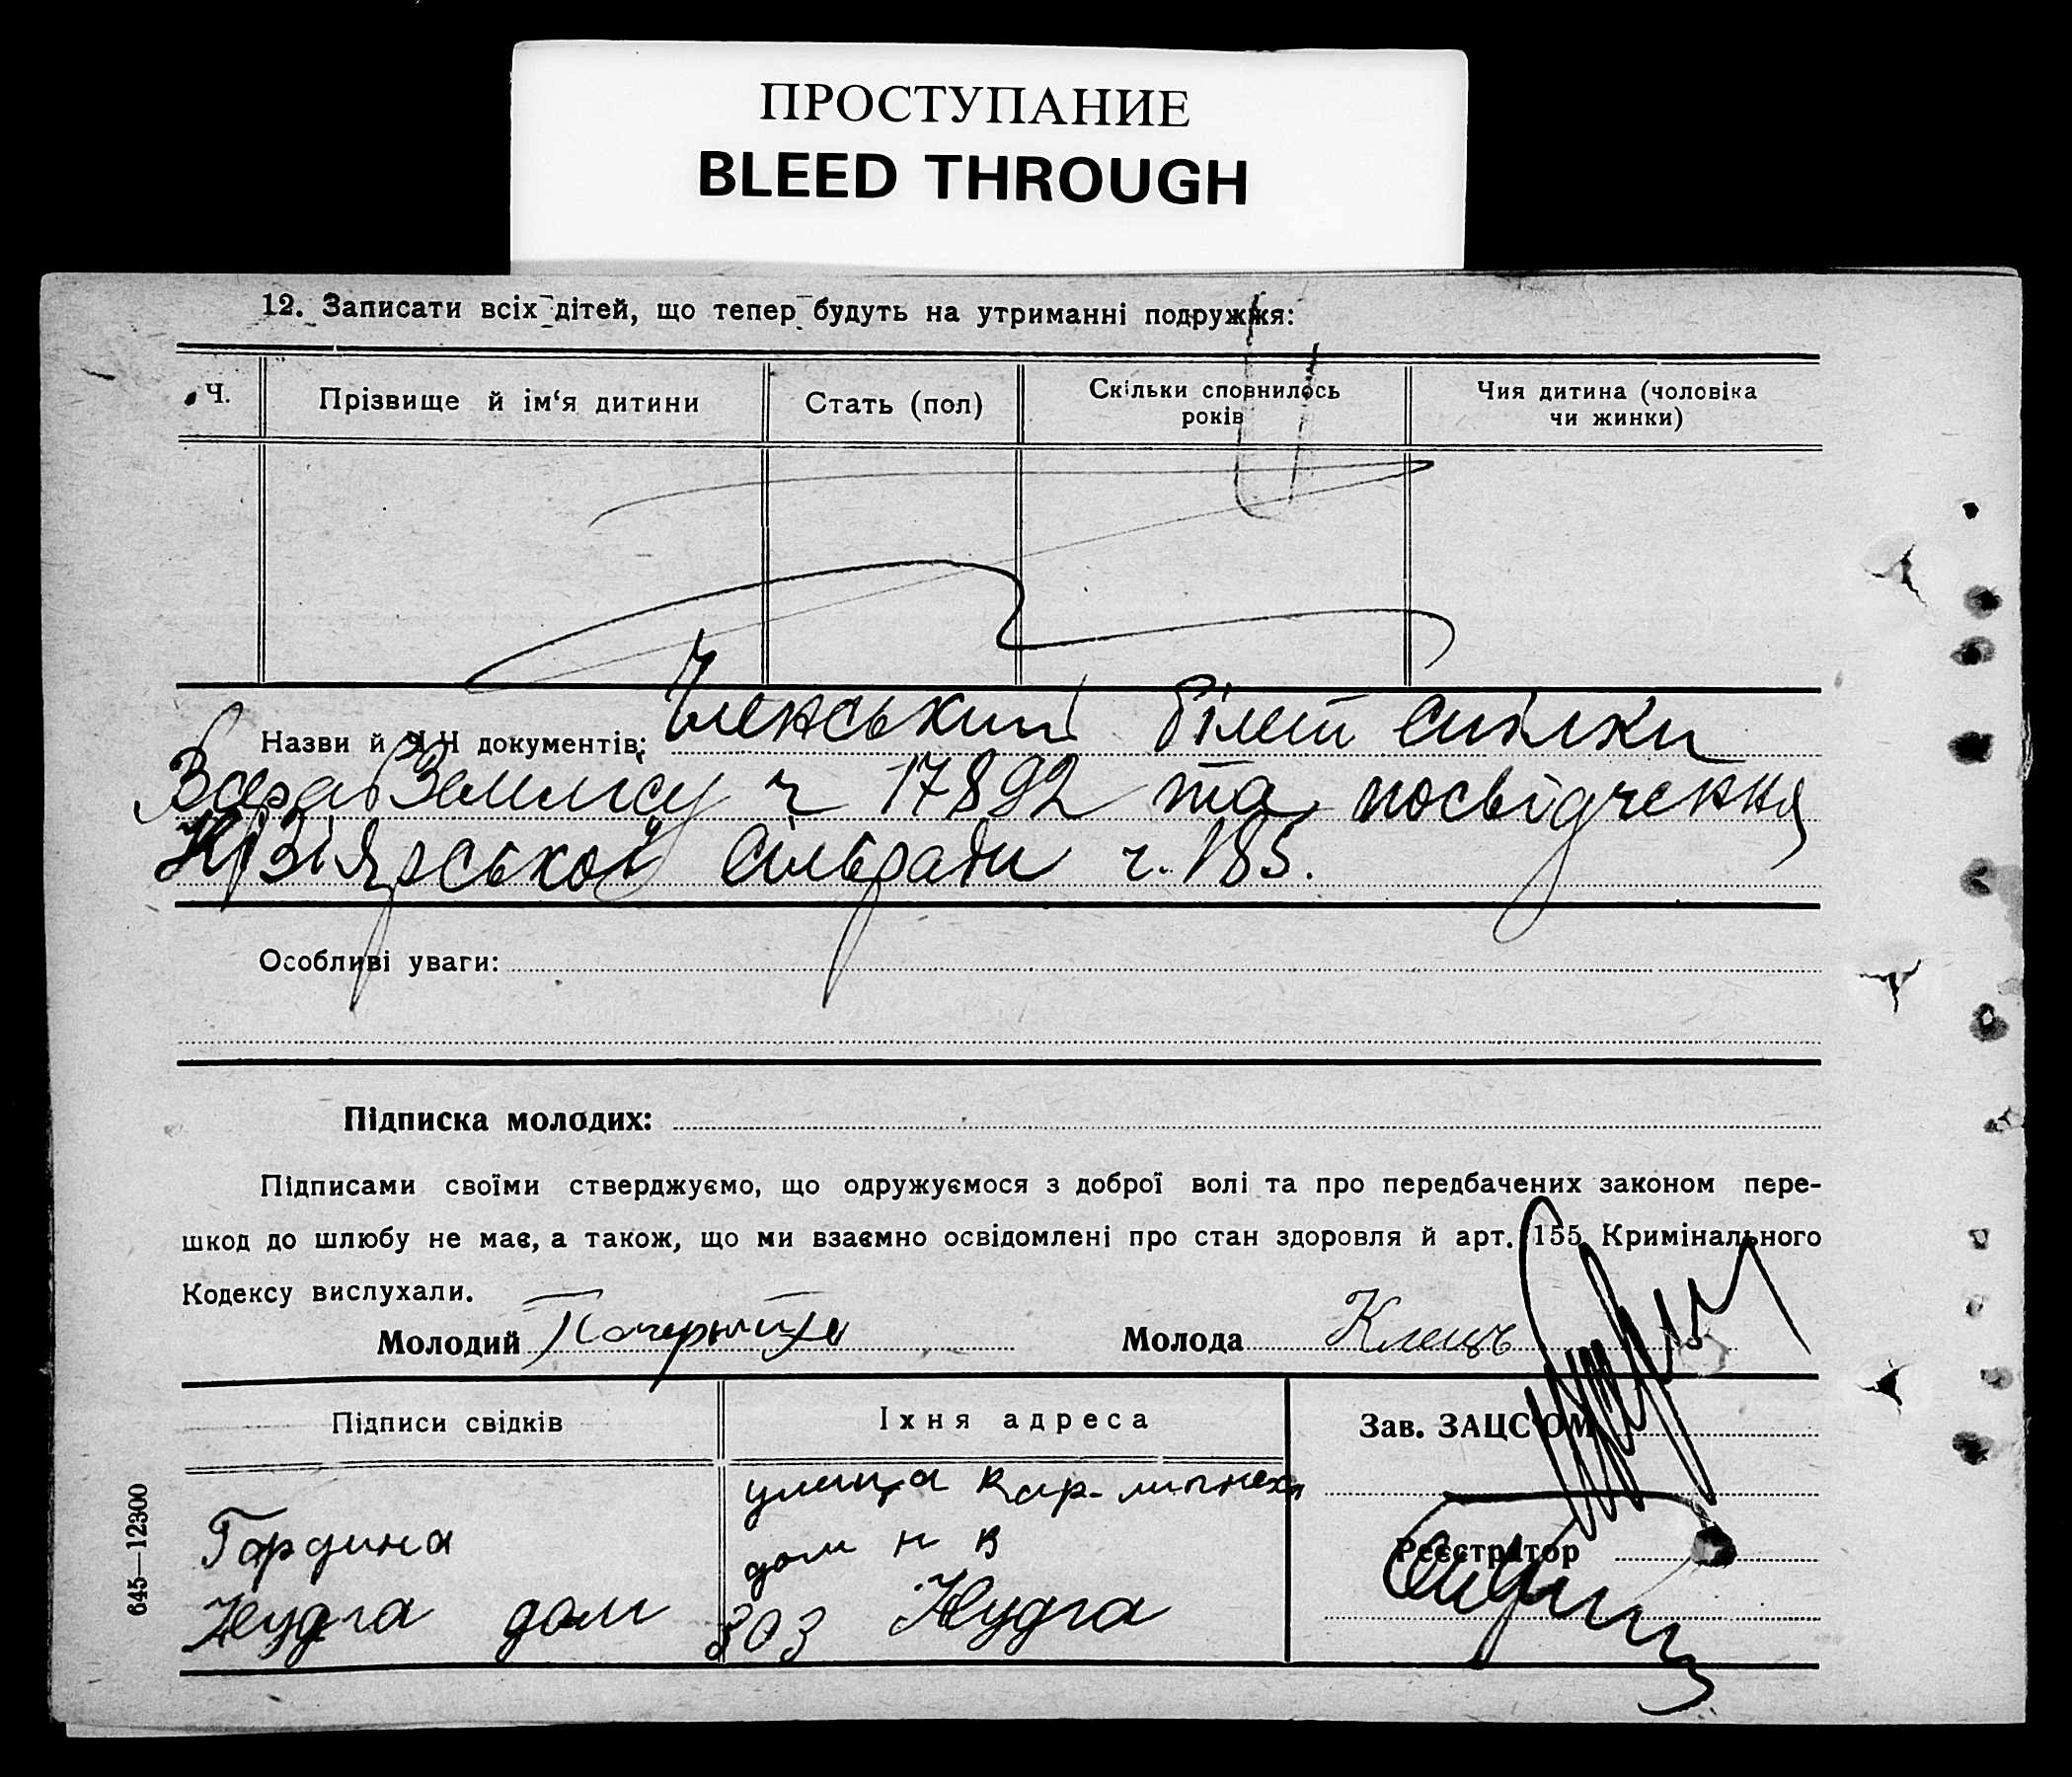 ПРОСТУПАНИЕ
BLEED THROUGH
12. Записати всіх дітей, що тепер будуть на утриманні подружжя:
Ч.
Прізвище й ім‘я дитини
Стать (пол)
Скільки сповнилось
років
Чия дитина (чоловіка
чи жинки)
Назви й ЧЧ документів: Членський білет спілки
ВсерабЗемлісу ч 17892 та посвідчення
сільради ч. 185.
Особливі уваги:
Підписка молодих:
Підписами своїми стверджуємо, що одружуємося з доброї волі та про передбачених законом пере-
шкод до шлюбу не має, а також, що ми взаємно освідомлені про стан здоровля й арт. 155 Кримінального
Кодексу вислухали.
Молодий
Молода Клець
Підписи свідків
Їхня адреса
Зав. ЗАЦС‘ОМ
улица
Гардина
дом н в
Реєстратор
Нудга дом 303 Нудга
645—12300